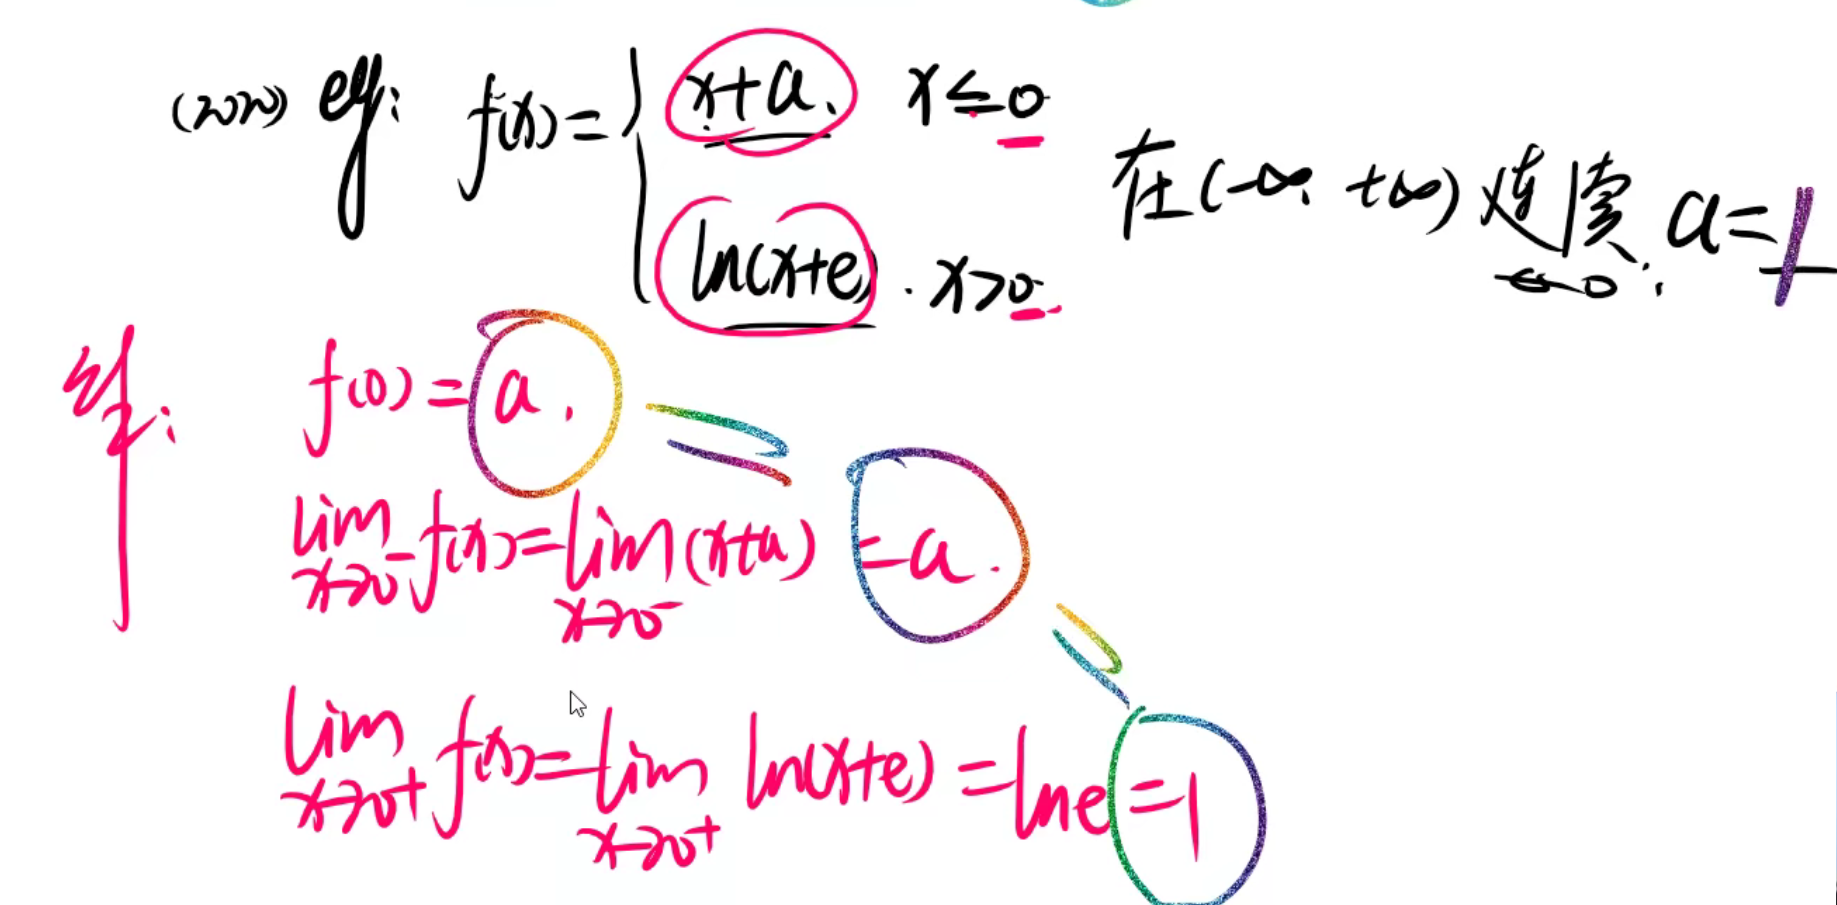 (2020) eg: f(x) = { x+a, x≤0
在(-∞, +∞) 连续, a=1
ln(x+e), x>0
解: f(0) = a.
lim x→0⁻ f(x) = lim x→0⁻ (x+a) = a.
lim x→0⁺ f(x) = lim x→0⁺ ln(x+e) = lne = 1